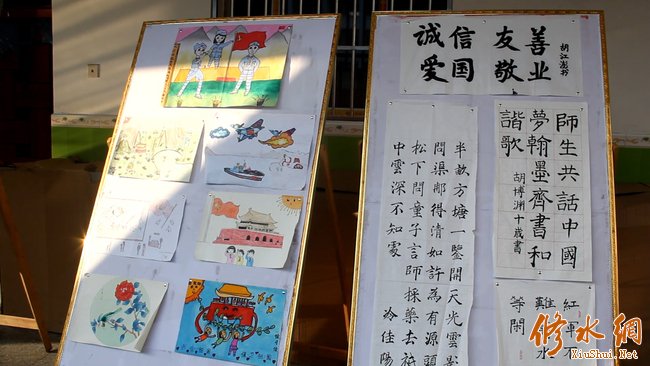 诚信 友善
爱国 敬业
師生共話中國
夢翰墨齊書和
諧歌 胡博渊十歲書
半畝方塘一鑒開天光雲影
問渠那得清如許為有源頭
松下問童子言師採藥去祇
中雲深不知處 冷佳陽
紅軍不
難水
等閒
修水網
XiuShui.Net